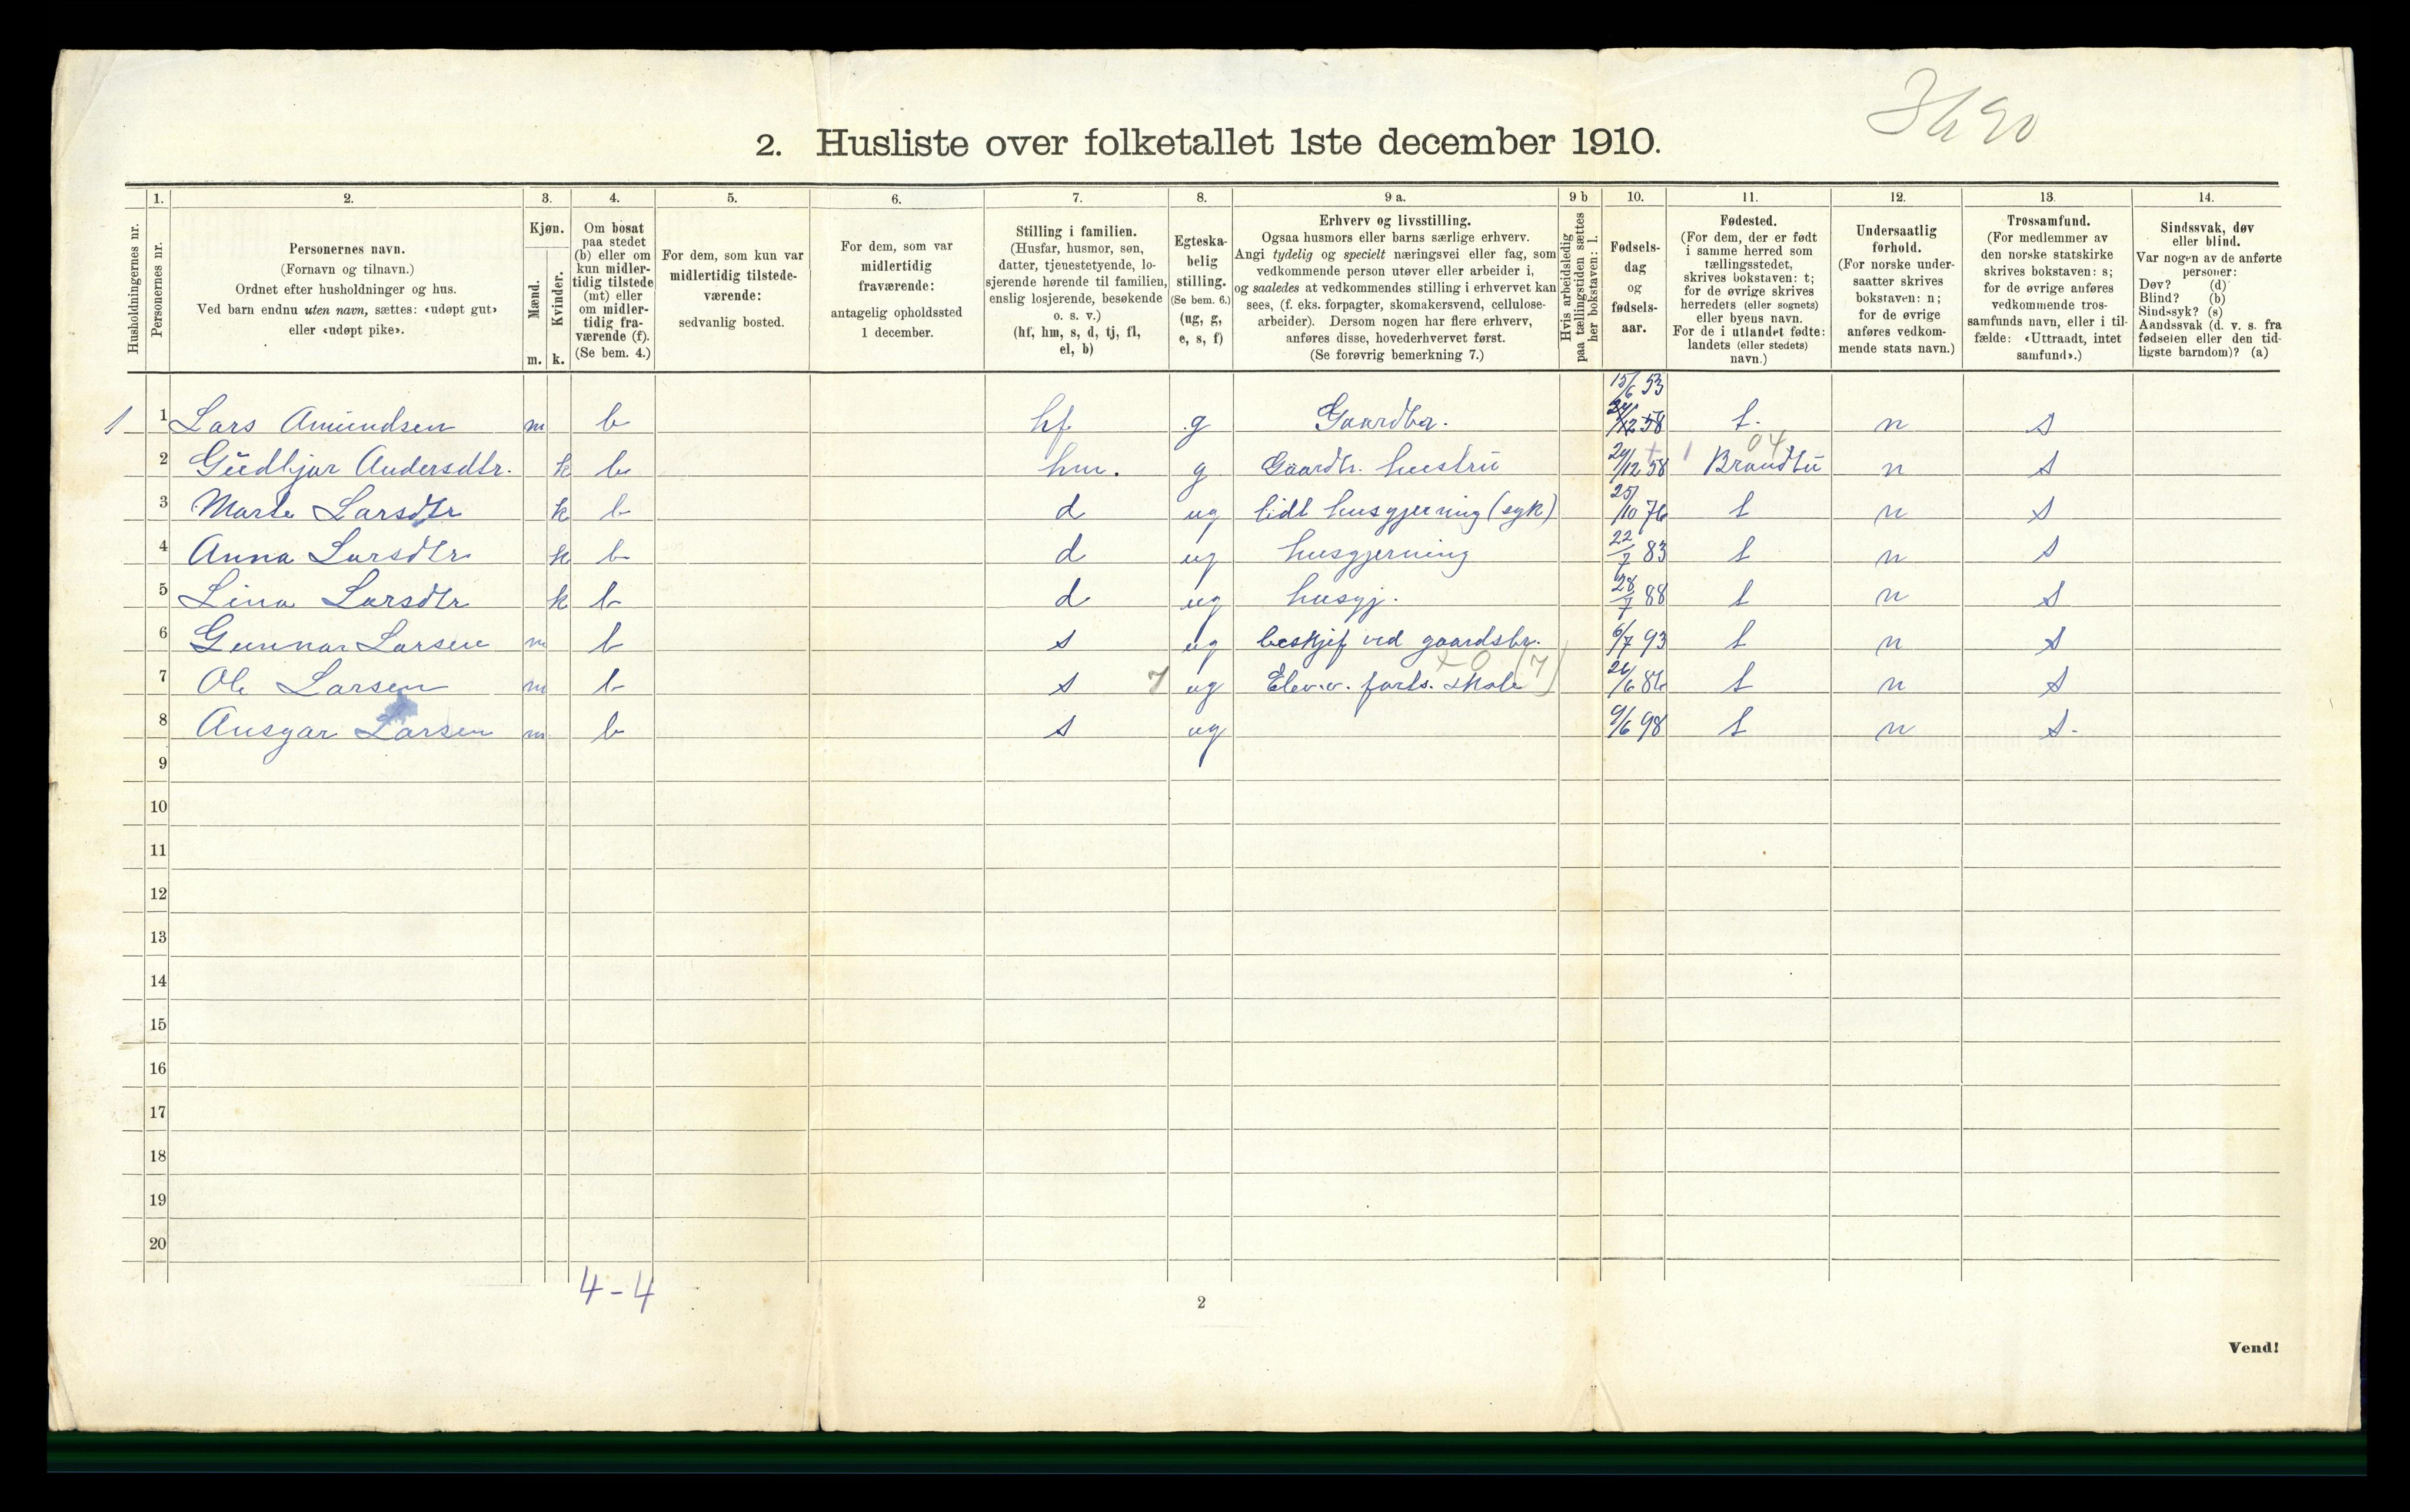 3690
2. Husliste over folketallet 1ste december 1910.
1. 2. 3. 4. 5. 6. 7. 8. 9 a. 9 b 10. 11. 12. 13. 14.
Husholdningernes nr.
Personernes nr.
Personernes navn.
(Fornavn og tilnavn.)
Ordnet efter husholdninger og hus.
Ved barn endnu uten navn, sættes: «udøpt gut»
eller «udøpt pike».
Kjøn.
Mænd.
Kvinder.
m. k.
Om bosat
paa stedet
(b) eller om
kun midler-
tidig tilstede
(mt) eller
om midler-
tidig fra-
værende (f).
(Se bem. 4.)
For dem, som kun var
midlertidig tilstede-
værende:
sedvanlig bosted.
For dem, som var
midlertidig
fraværende:
antagelig opholdssted
1 december.
Stilling i familien.
(Husfar, husmor, søn,
datter, tjenestetyende, lo-
sjerende hørende til familien,
enslig losjerende, besøkende
o. s. v.)
(hf, hm, s, d, tj, fl,
el, b)
Egteska-
belig
stilling.
(Se bem. 6.)
(ug, g,
e, s, f)
Erhverv og livsstilling.
Ogsaa husmors eller barns særlige erhverv.
Angi tydelig og specielt næringsvei eller fag, som
vedkommende person utøver eller arbeider i,
og saaledes at vedkommendes stilling i erhvervet kan
sees, (f. eks. forpagter, skomakersvend, cellulose-
arbeider). Dersom nogen har flere erhverv,
anføres disse, hovederhvervet først.
(Se forøvrig bemerkning 7.)
Hvis arbeidsledig
paa tællingstiden sættes
her bokstaven: l.
Fødsels-
dag
og
fødsels-
aar.
Fødested.
(For dem, der er født
i samme herred som
tællingsstedet,
skrives bokstaven: t;
for de øvrige skrives
herredets (eller sognets)
eller byens navn.
For de i utlandet fødte:
landets (eller stedets)
navn.)
Undersaatlig
forhold.
(For norske under-
saatter skrives
bokstaven: n;
for de øvrige
anføres vedkom-
mende stats navn.)
Trossamfund.
(For medlemmer av
den norske statskirke
skrives bokstaven: s;
for de øvrige anføres
vedkommende tros-
samfunds navn, eller i til-
fælde: «Uttraadt, intet
samfund».)
Sindssvak, døv
eller blind.
Var nogen av de anførte
personer:
Døv? (d)
Blind? (b)
Sindssyk? (s)
Aandssvak (d. v. s. fra
fødselen eller den tid-
ligste barndom)? (a)
15/6 53
1 1 Lars Amundsen m b hf g Gaardbr. 24/12 58 t. n s
04
2 Gudbjør Andersdtr. k b hm. g Gaardbr. hustru 24/12 58 Brandbu n s
3 Marte Larsdtr k b d ug lidt husgjerning (syk) 25/10 76 t n s
4 Anna Larsdtr k b d ug husgjerning 22/7 83 t n s
5 Lina Larsdtr k b d ug husgj. 28/7 88 t n s
6 Gunnar Larsen m b s ug beskjef ved gaardsbr. 6/7 93 t n s
7 Ole Larsen m b s 7 ug Elev. v. forts. skole (7) 26/6 86 t n s
8 Ansgar Larsen m b s ug 9/6 98 t n s.
9
10
11
12
13
14
15
16
17
18
19
20
4-4
2
Vend!